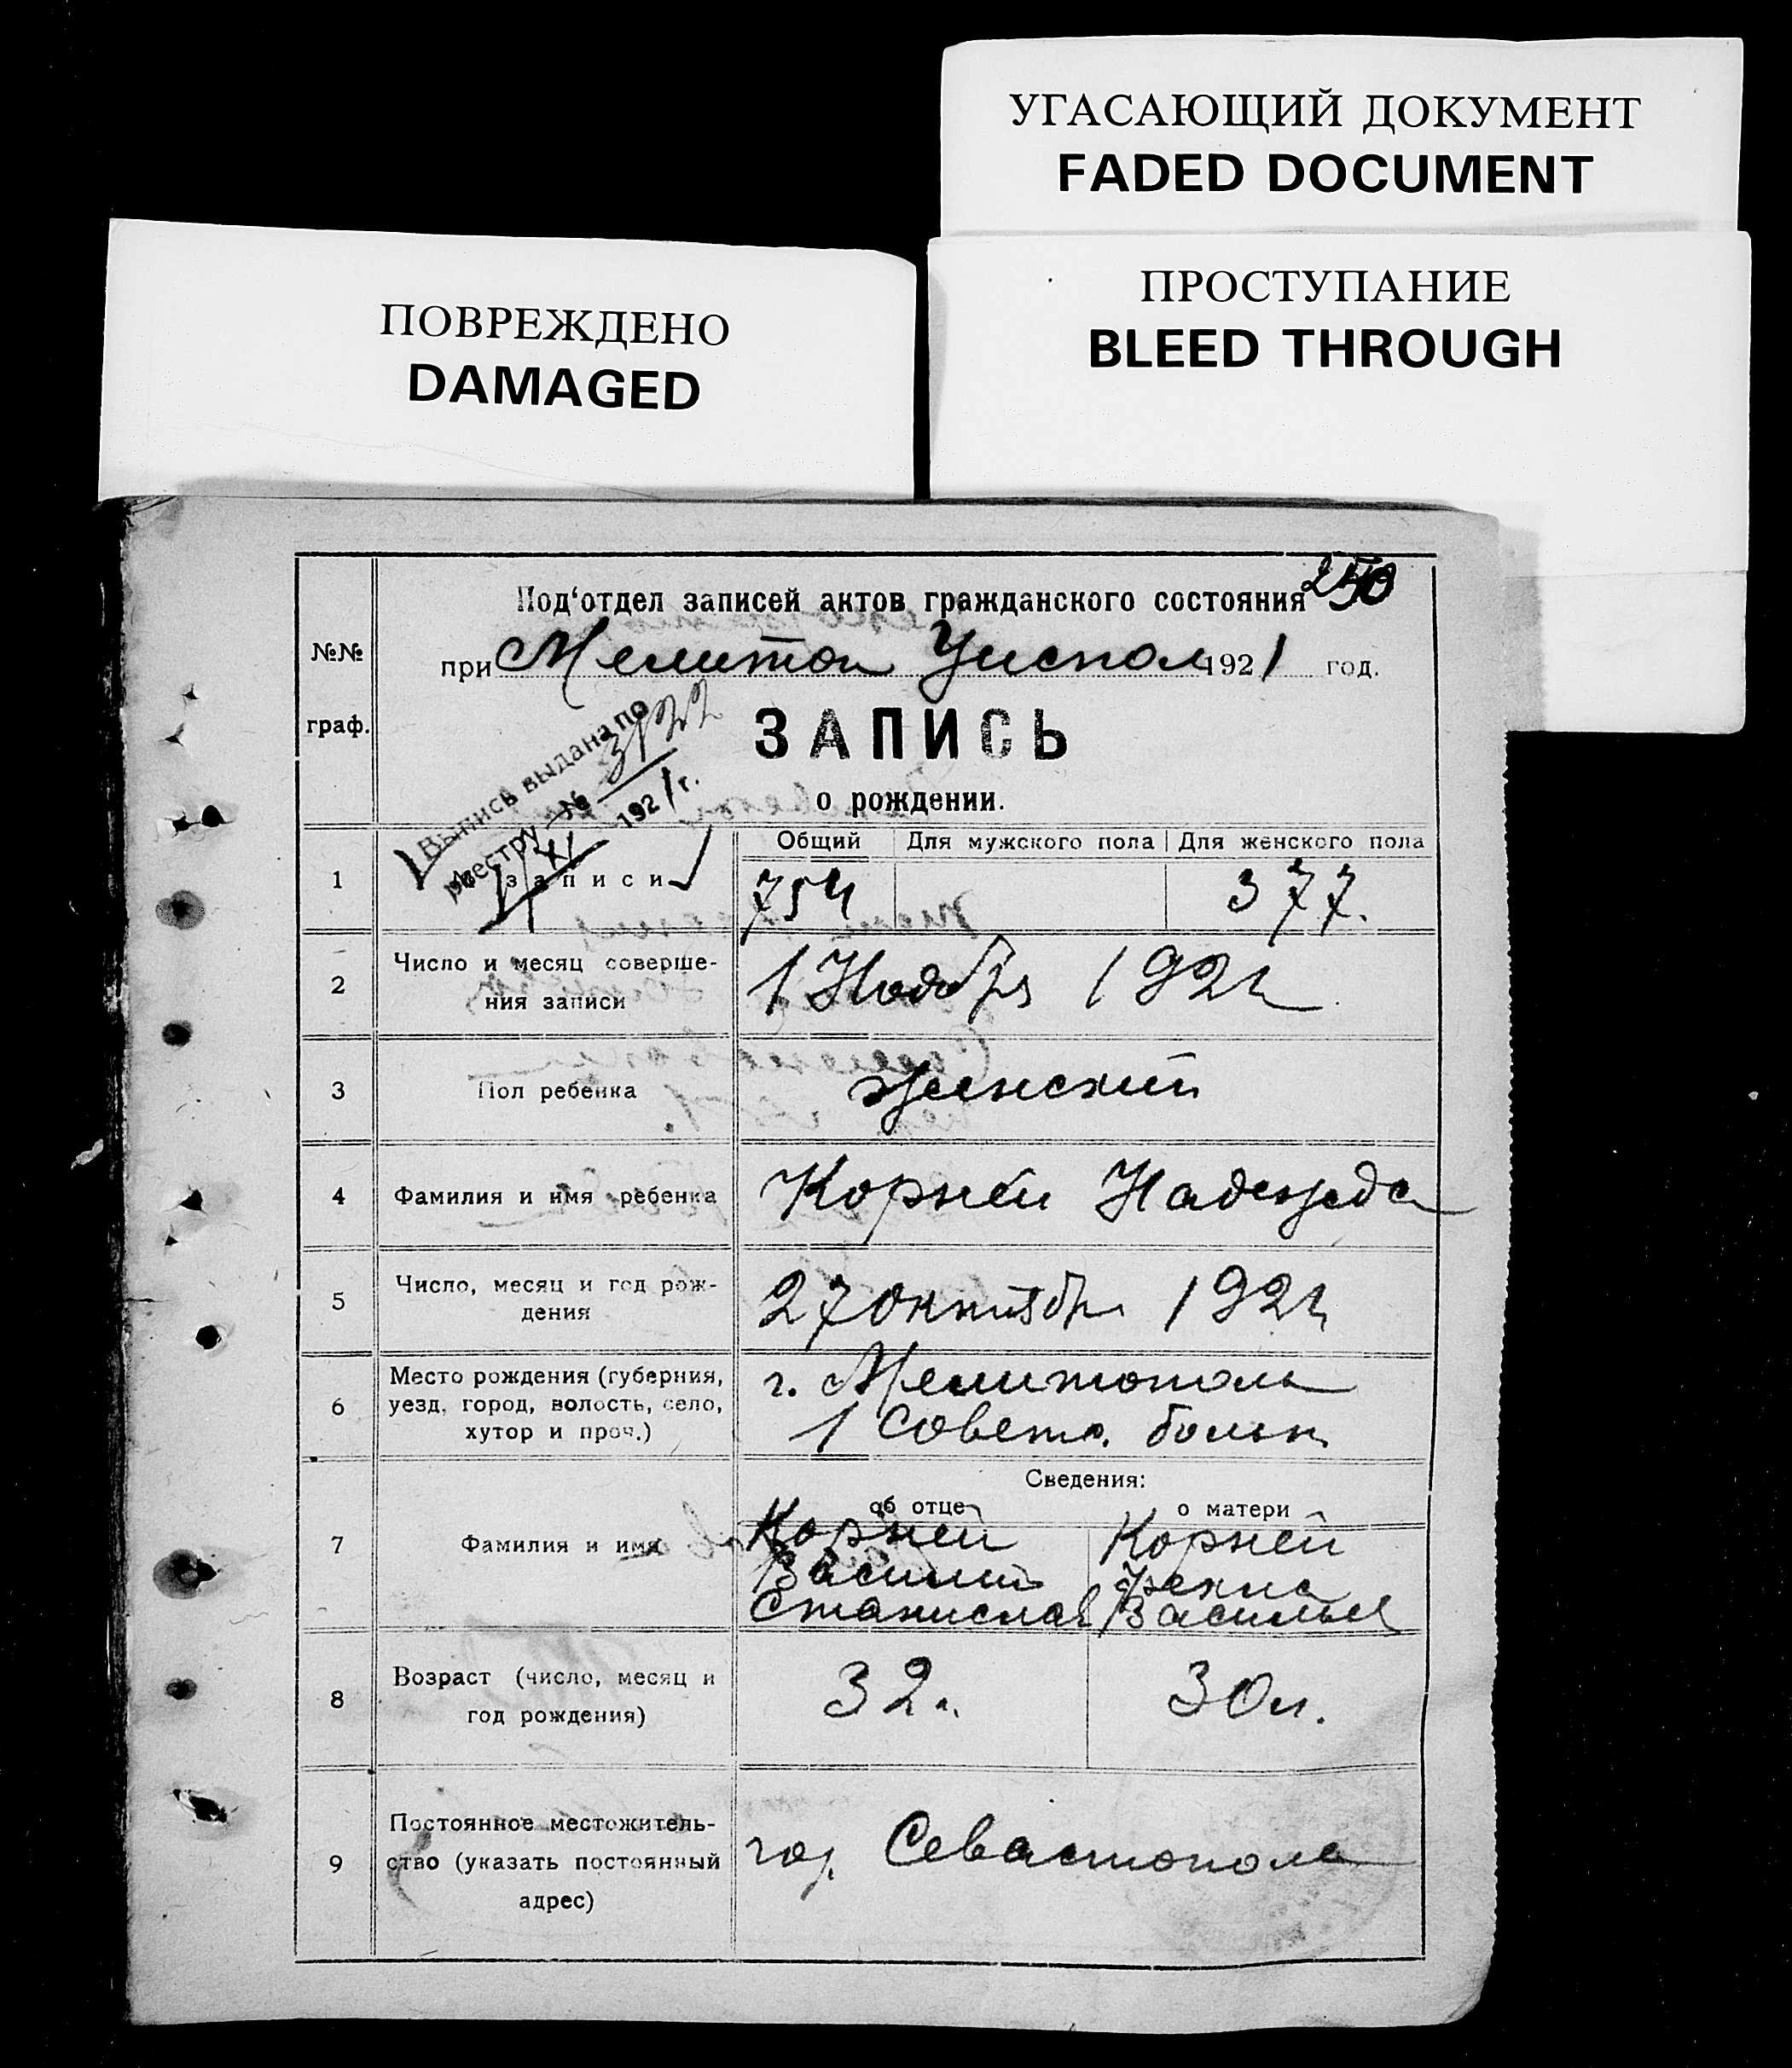 УГАСАЮЩИЙ ДОКУМЕНТ
FADED DOCUMENT
ПРОСТУПАНИЕ
BLEED THROUGH
ПОВРЕЖДЕНО
DAMAGED
250
Под‘отдел записей актов гражданского состояния
при Мелитоп Уиспол 1921 год.
№№
граф.
ЗАПИСЬ
о рождении.
Выпись выдана по
реестру № 3122
1/XI 1921 г.
Общий Для мужского пола Для женского пола
1 № записи 754 377.
2 Число и месяц соверше-
ния записи
1 Ноября 1921
3 Пол ребенка женский
4 Фамилия и имя ребенка Корней Надежда
5 Число, месяц и год рож-
дения
27 октября 1921
6 Место рождения (губерния,
уезд, город, волость, село,
хутор и проч.)
г. Мелитополь
1 Советс. больн.
Сведения:
об отце о матери
7 Фамилия и имя
Корней Корней
Василий
Станислав Васильев
8 Возраст (число, месяц и
год рождения)
32 л. 30 л.
9 Постоянное местожитель-
ство (указать постоянный
адрес)
гор. Севастополь